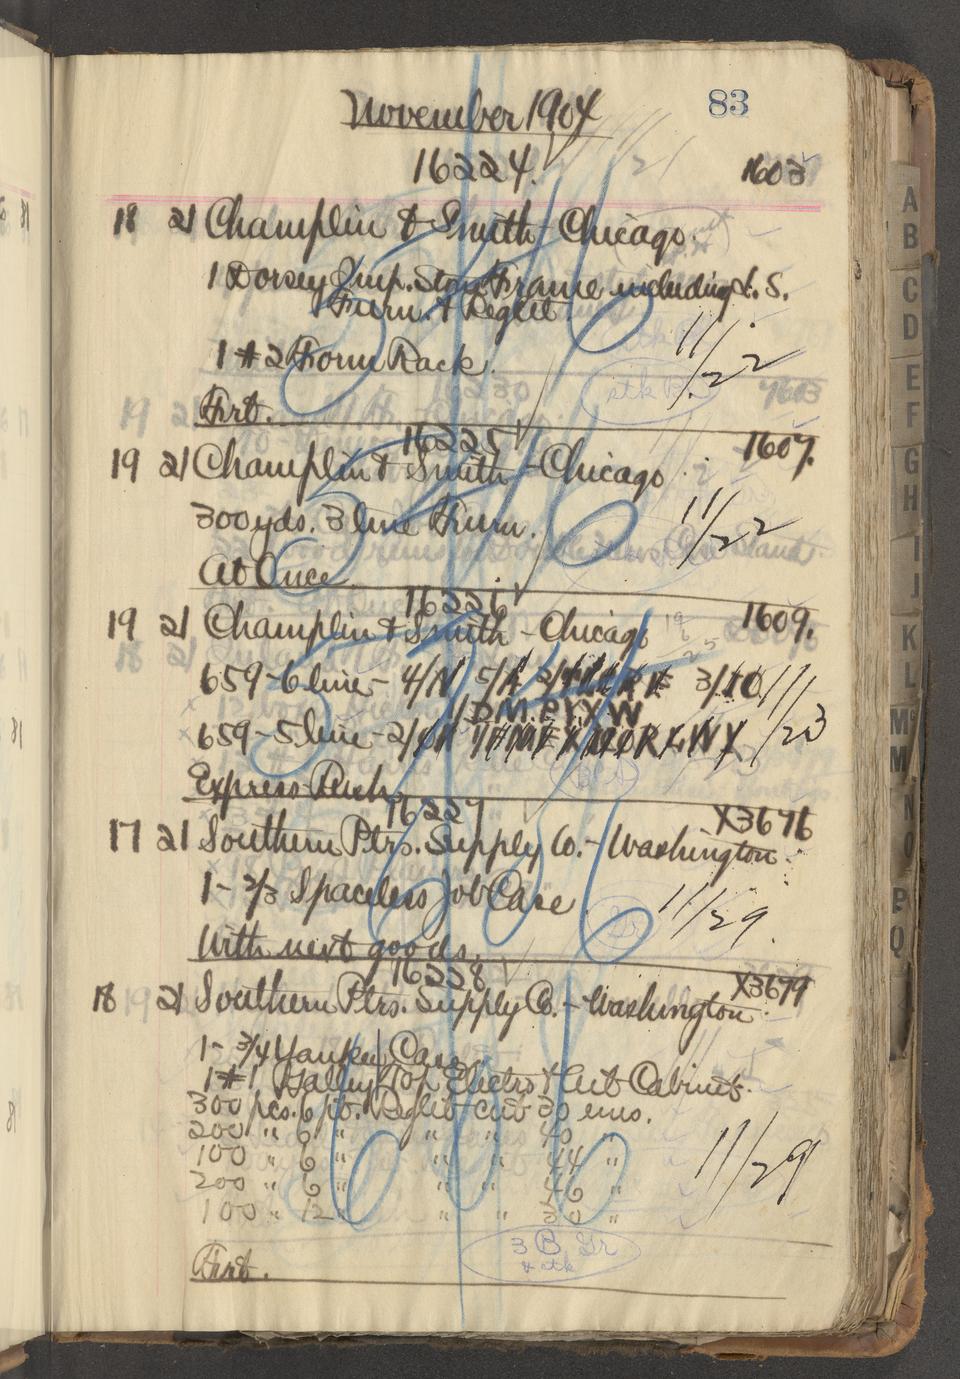 November 1904
83
16224.
1603
18 21 Champlin & Smith - Chicago.
1 Dorsey Imp. Stone Frame including L. S.
Furn. & Reglet.
1 #2 Form Rack.
11/22
Frt.
16225
1607.
19 21 Champlin & Smith - Chicago
300 yds. 3 line Furn.
11/22
At Once
16226
1609.
19 21 Champlin & Smith - Chicago
659 - 6 line - 4/N 5/A
3/
659 - 5 line - 2/
11/23
Express Rush
16227
X3676
17 21 Southern Ptrs. Supply Co. - Washington.
1 - 2/3 Spaceless Job Case
11/29.
With next goods.
16228
X3679
18 21 Southern Ptrs. Supply Co. - Washington.
1 - 3/4 Yankee Case
1 #1 Galley Top Electro & Cut Cabinet.
300 pcs. 6 pt. Reglet cut 30 ems.
200 " 6 " " " 40 "
100 " 6 " " " 44 "
200 " 6 " " " 46 "
100 " 12 " " " 30 "
11/29
3 B Gr
& stk
Frt.
A
B
C
D
E
F
G
H
I
J
K
L
M
M
N
O
P
Q